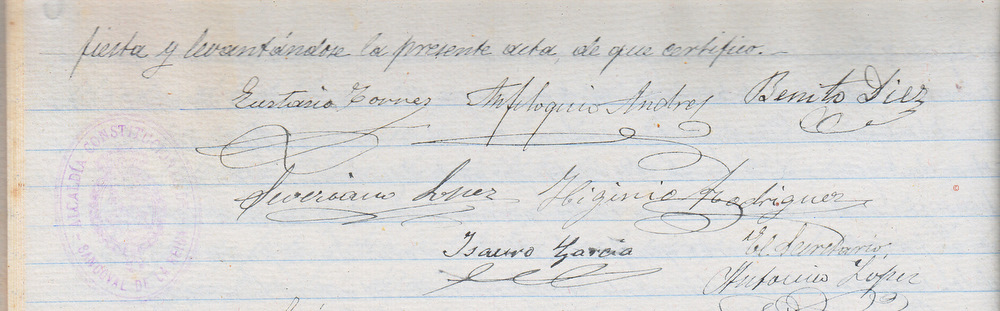 fiesta y levantándose la presente acta, de que certifico.—
Eustasio Torres Anfiloquio Andres Benito Diez
Severiano Lopez Higinio Rodriguez
Isauro García El Secretario,
Antonio Lopez
ALCALDÍA CONSTITUCIONAL
SANDOVAL DE LA REINA